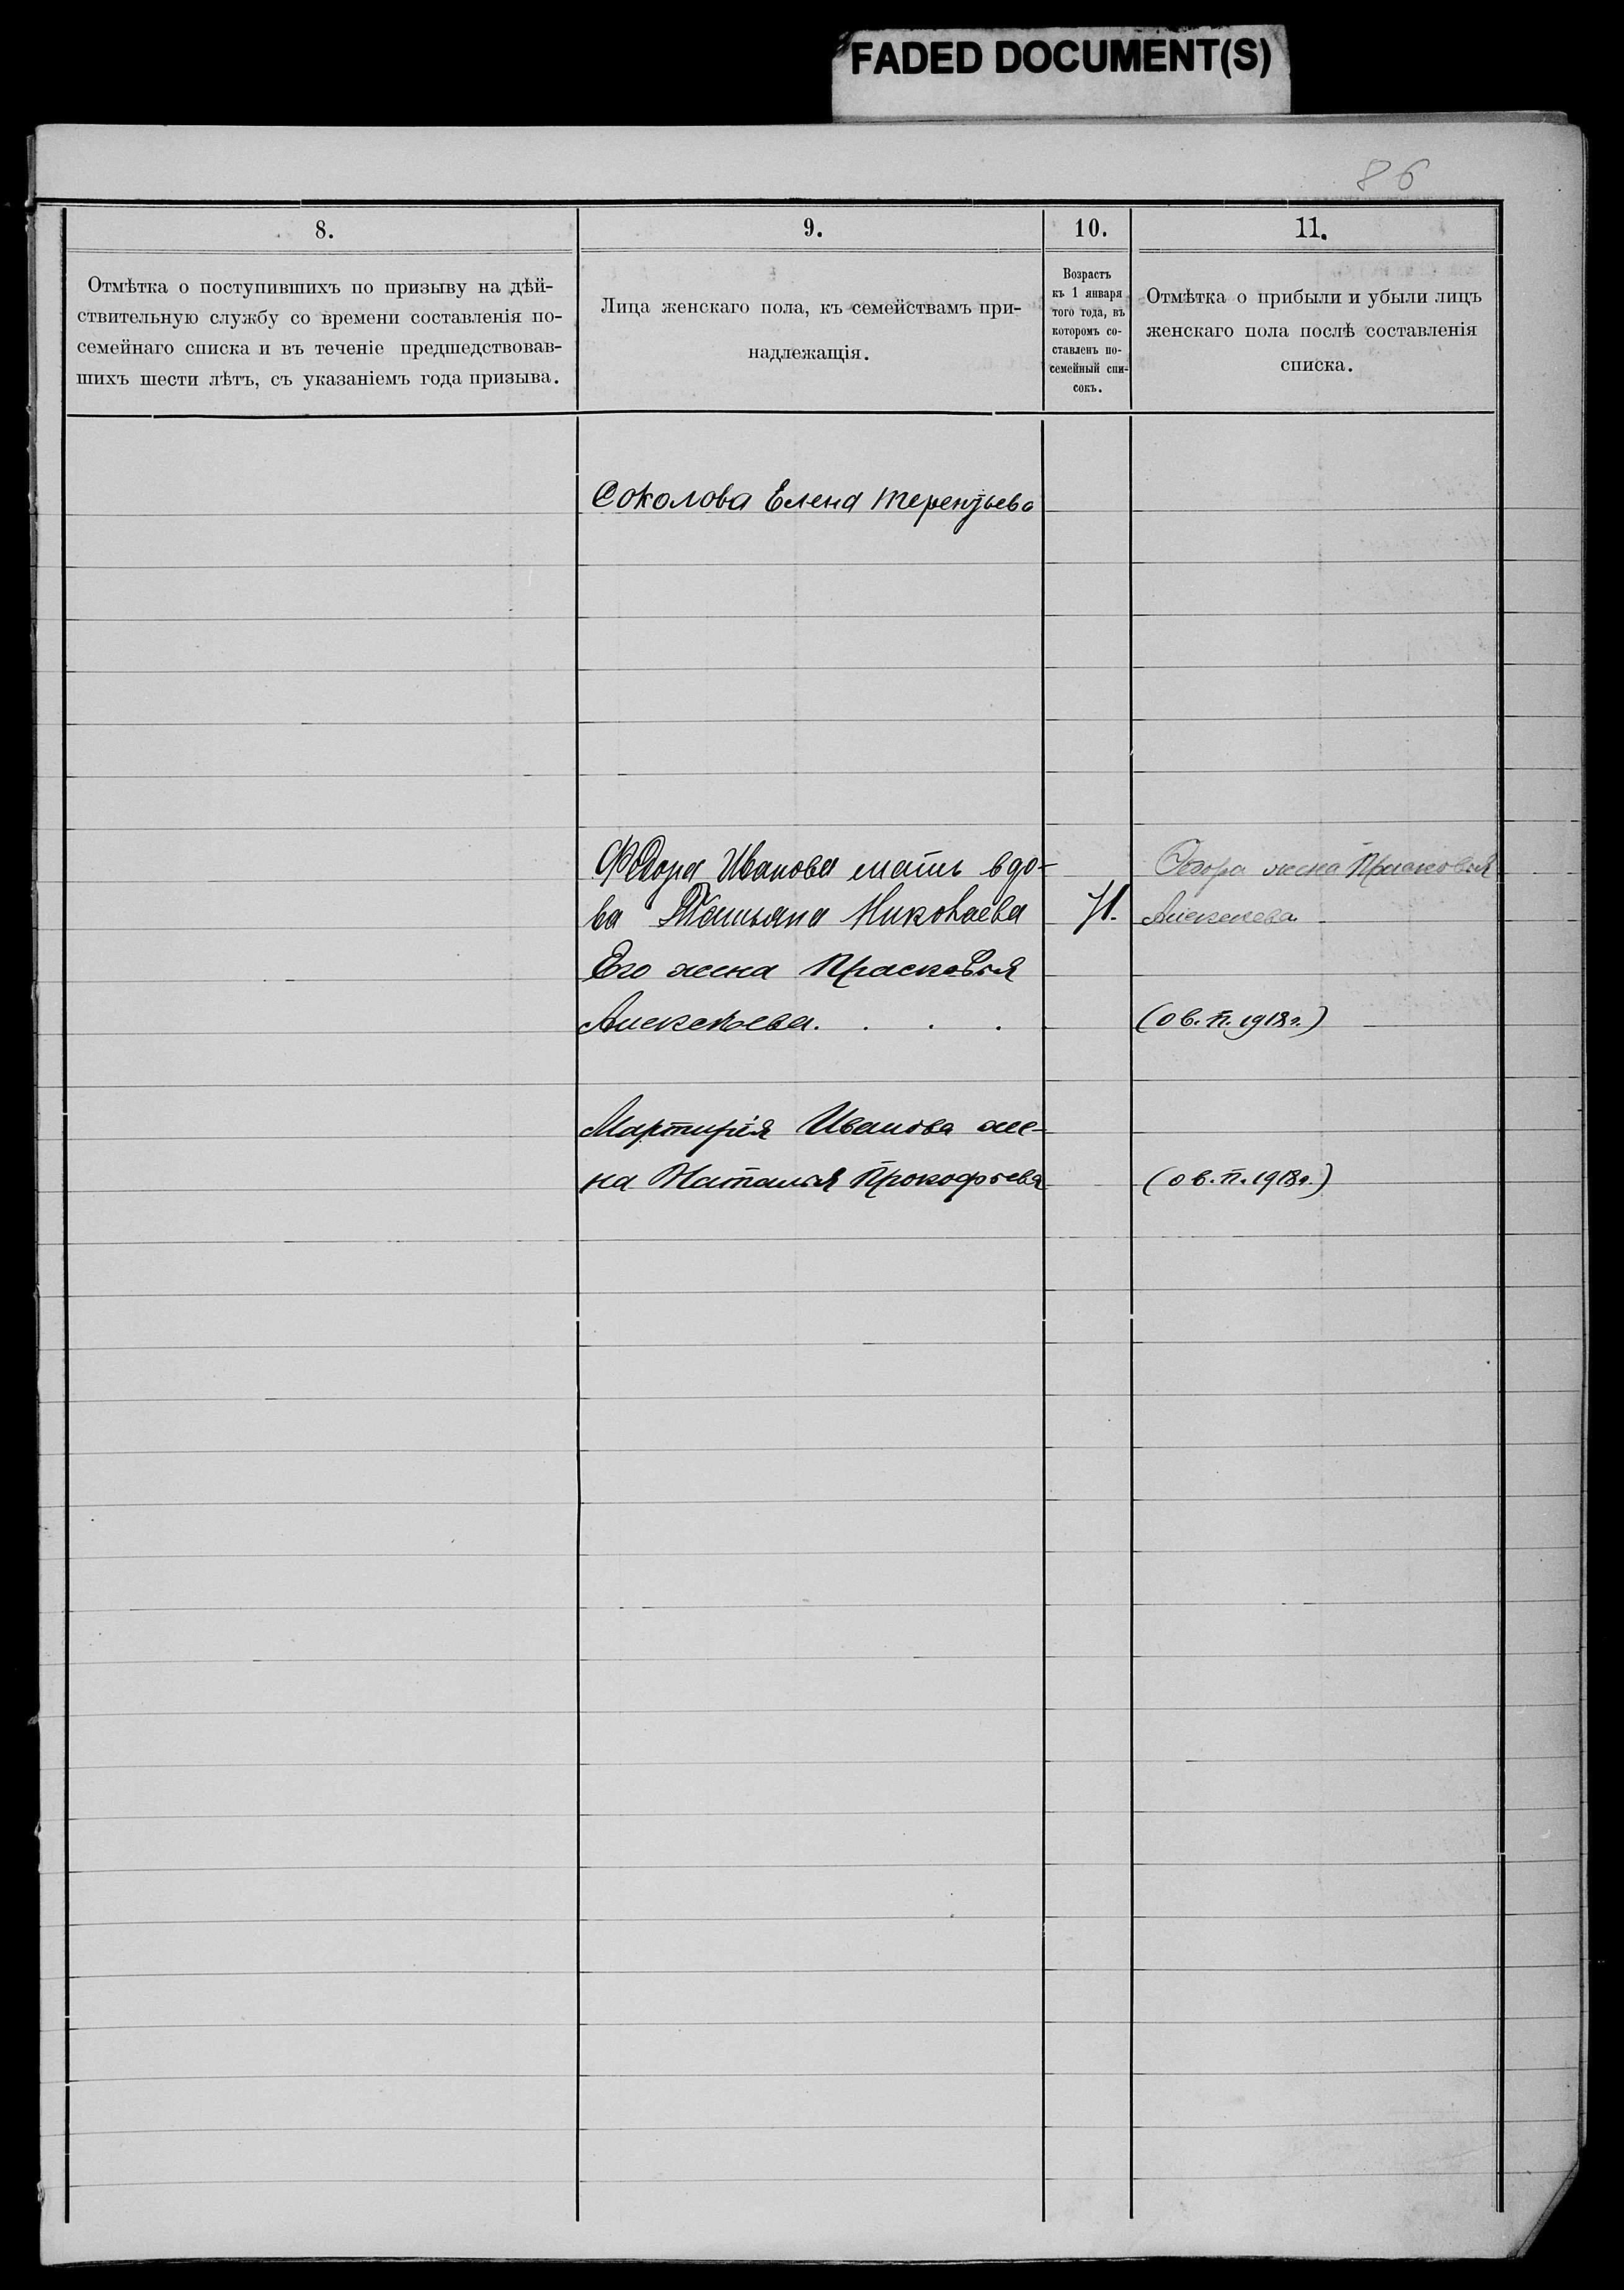 FADED DOCUMENT(S)
86
8.
9.
10.
11.
Отмѣтка о поступившихъ по призыву на дѣй-
ствительную службу со времени составленія по-
семейнаго списка и въ теченіе предшедствовав-
шихъ шести лѣтъ, съ указаніемъ года призыва.
Лица женскаго пола, къ семействамъ при-
надлежащія.
Возрастъ
къ 1 января
того года, въ
которомъ со-
ставленъ по-
семейный спи-
сокъ.
Отмѣтка о прибыли и убыли лицъ
женскаго пола послѣ составленія
списка.
Соколова Елена Терентьева
Ѳедора Иванова мать вдо-
ва Татьяна Николаева
71.
Его жена Прасковья
Алексѣева. . . .
Ѳедора жена Прасковья
Алексеева
(о в. п. 1918 г.)
Мартирія Иванова же-
на Наталья Прокофьева
(о в. п. 1918 г.)